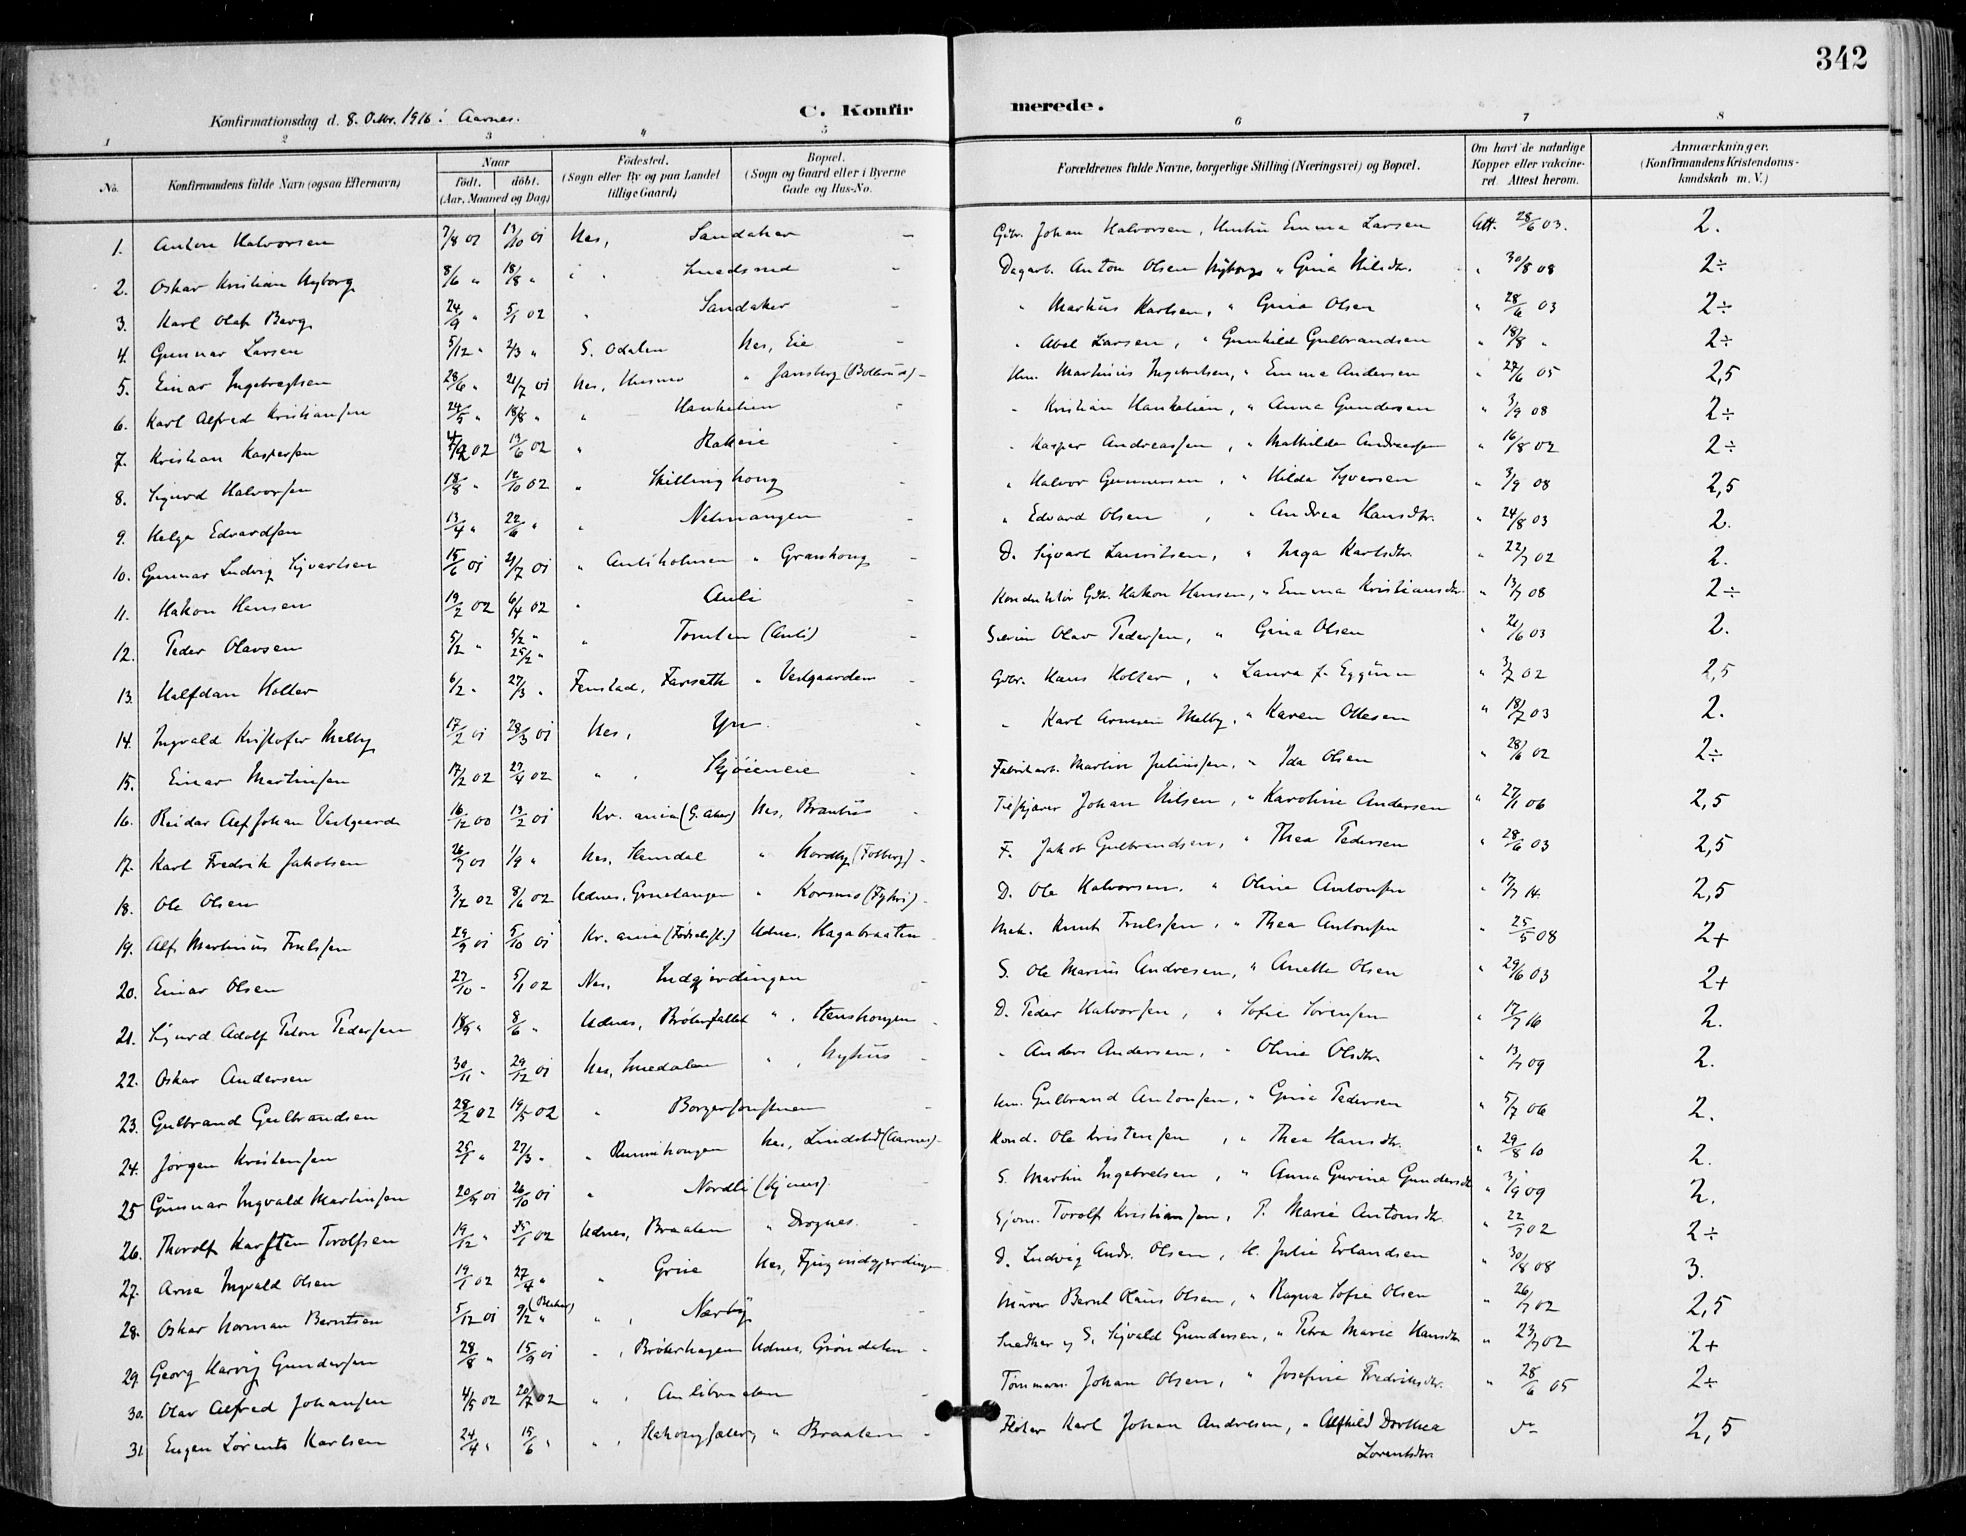 342
Konfirmationsdag d. 8. Oktbr. 1916 i Aarnes.
C. Konfirmerede.
1 2 3 4 5 6 7 8
No. Konfirmandens fulde Navn (ogsaa Efternavn) Naar födt. döbt. (Aar, Maaned og Dag) Födested. (Sogn eller By og paa Landet tillige Gaard) Bopæl. (Sogn og Gaard eller i Byerne Gade og Hus-No. Forældrenes fulde Navne, borgerlige Stilling (Næringsvei) og Bopæl. Om havt de naturlige Kopper eller vakcineret. Attest herom. Anmærkninger. (Konfirmandens Kristendomskundskab m. V.)
1. Anton Halvorsen 7/8 01 13/10 01 Nes, Sandaker – Gbr. Johan Halvorsen, Hustru Emma Larsen Att. 28/6 03. 2.
2. Oskar Kristian Nyborg 8/6 " 18/8 " Smedsrud – Dagarb. Anton Olsen Nyborg " Gina Nilsdtr. " 30/8 08 2÷
3. Karl Olaf Berg 24/9 " 5/1 02 " Sandaker – " Markus Karlsen, " Gina Olsen " 28/6 03 2÷
4. Gunnar Larsen 5/12 " 2/3 " S. Odalen Nes, Eie – " Abel Larsen, " Gunhild Gulbrandsen " 18/8 " 2÷
5. Einar Ingebregtsen 28/6 " 21/7 01 Nes, " Jansberg (Bollerud) – Hm. Martinius Ingebretsen, " Emma Andersen " 27/6 05 2,5
6. Karl Alfred Kristiansen 24/5 " 18/8 " " Hankelien " Kristian Hankelien, " Anna Gundersen " 3/9 08 2÷
7. Kristian Kaspersen 02 13/6 02 " Rakeie – " Kasper Andreassen, " Mathilde Andreassen " 16/8 02 2÷
8. Sigurd Halvorsen 18/8 " 12/10 02 " Skillinghoug – " Halvor Gunnersen, " Hilda Syversen " 3/9 08 2,5
9. Helge Edvardsen 13/4 " 22/6 " " – " Edvard Olsen, " Andrea Hansdtr. " 24/8 03 2.
10. Gunnar Ludvig Sigvartsen 15/6 01 21/7 01 " Auliholmen " Granhoug – D. Sigvart Lauritsen, " Inga Karlsdtr. " 22/7 02 2.
11. Hakon Hansen 19/2 02 6/4 02 " Auli – Konduktør Gbr. Hakon Hansen, " Emma Kristiansdtr. " 13/7 08 2÷
12. Peder Olavsen 5/2 " 5/2 " 25/2 " " Tomten (Auli) – Olav Pedersen, " Gina Olsen " 21/6 03 2.
13. Halfdan Holter 6/2 " 27/3 " Fenstad, Farseth " Vestgaarden – Gbr. Hans Holter, " Laura f. Eggum " 3/7 02 2,5
14. Ingvald Kristofer Melby 17/2 01 28/3 01 Nes, – " Karl Melby, " Karen Ottesen " 18/7 03 2.
15. Einar Martinsen 17/2 02 27/4 02 " , Skjöieneie – Fabrikarb. Martin Juliussen, " Ida Olsen " 28/6 02 2÷
16. Reidar Alf Johan Vestgaard 16/12 00 13/2 01 Kr.ania (G. Aker) Nes, – Johan Nilsen, " Karoline Andersen " 27/1 06 2,5
17. Karl Fredrik Jakobsen 26/7 01 1/9 " Nes, Hemdal " Nordby (Tolberg) – F. Jakob Gulbrandsen, " Thea Pedersen " 28/6 03 2,5
18. Ole Olsen 3/2 02 8/6 02 Udnes, " Korsmo – D. Ole Halvorsen, " Oline Antonsen " 17/7 14. 2,5
19. Alf Martinius Trulssen 29/9 01 5/10 01 Kr.ania (Födselsst.) Udnes, Hagabraaten – Knut Trulssen, " Thea Antonsen " 25/5 08 2+
20. Einar Olsen 27/10 " 5/1 02 Nes, Indgjerdingen – S. Ole Marius Andresen, " Anette Olsen " 29/6 03 2+
21. Sigurd Adolf Peton Pedersen " 8/6 " Udnes, " , Stenshougen – D. Peder Halvorsen, " Sofie Sörensen " 17/7 16 2.
22. Oskar Andersen 30/11 " 29/12 01 Nes, Smedalen " , Nyhus – " Anders Andersen, " Oline Olsdtr. " 13/7 09 2.
23. Gulbrand Gulbrandsen 28/2 02 19/5 02 " – Hm. Gulbrand Antonsen, " Gina Pedersen " 5/7 06 2.
24. Jörgen Kristensen 25/1 " 27/3 " " Nes, Lindstad (Aarnes) – Kond. Ole Kristensen, " Thea Hansdtr. " 29/8 10 2.
25. Gunnar Ingvald Martinsen 20/9 01 26/10 01 " Nordli – S. Martin Ingebretsen, " Anna Gurine Gundersdtr. " 3/9 09 2.
26. Thorolf Karsten Torolfsen 19/12 " 25/1 02 Udnes, Braaten " Drognes – Sjöm. Torolf Kristiansen, P. Marie Antonsdtr. " 22/7 02 2÷
27. Arne Ingvald Olsen 19/1 02 27/4 " " Grine Nes, – D. Ludvig Andr. Olsen, H. Julie Erlandsen " 30/8 08 3.
28. Oskar Norman Berntsen 5/12 01 9/2 " " , Nærby – Murer Bernt Olsen, " Ragna Sofie Olsen " 26/7 02 2,5
29. Georg Harvig Gundersen 28/8 " 15/9 01 " , Bröterhagen Udnes, Gröndalen – Snedker og S. Sigvald Gundersen, " Petra Marie Hansdtr. " 23/7 02 2+
30. Olav Alfred Johansen 4/5 02 20/7 02 " , Aulibraaten – Tömmerm. Johan Olsen, " Josefine Fredriksdtr. " 28/6 05 2÷
31. Eugen Lorents Karlsen 24/4 " 15/6 " " , " Braaten – Karl Johan Andresen, " Alfhild Dorthea Lorentsdtr. 2,5